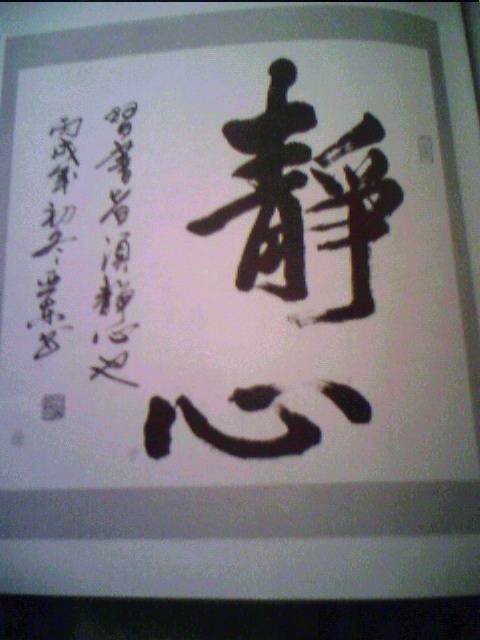 靜心
習書者須靜心也
丙戌年初冬